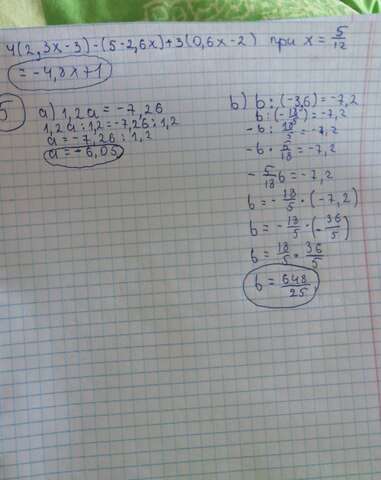 4(2,3x-3)-(5-2,6x)+3(0,6x-2) при x=5/12
=-4,8x+1
5
a) 1,2a=-7,26
1,2a:1,2=-7,26:1,2
a=-7,26:1,2
a=-6,05
b) b:(-3,6)=-7,2
b:(-18/5)=-7,2
-b:18/5=-7,2
-b·5/18=-7,2
-5/18b=-7,2
b=-18/5·(-7,2)
b=-18/5·(-36/5)
b=18/5·36/5
b=648/25